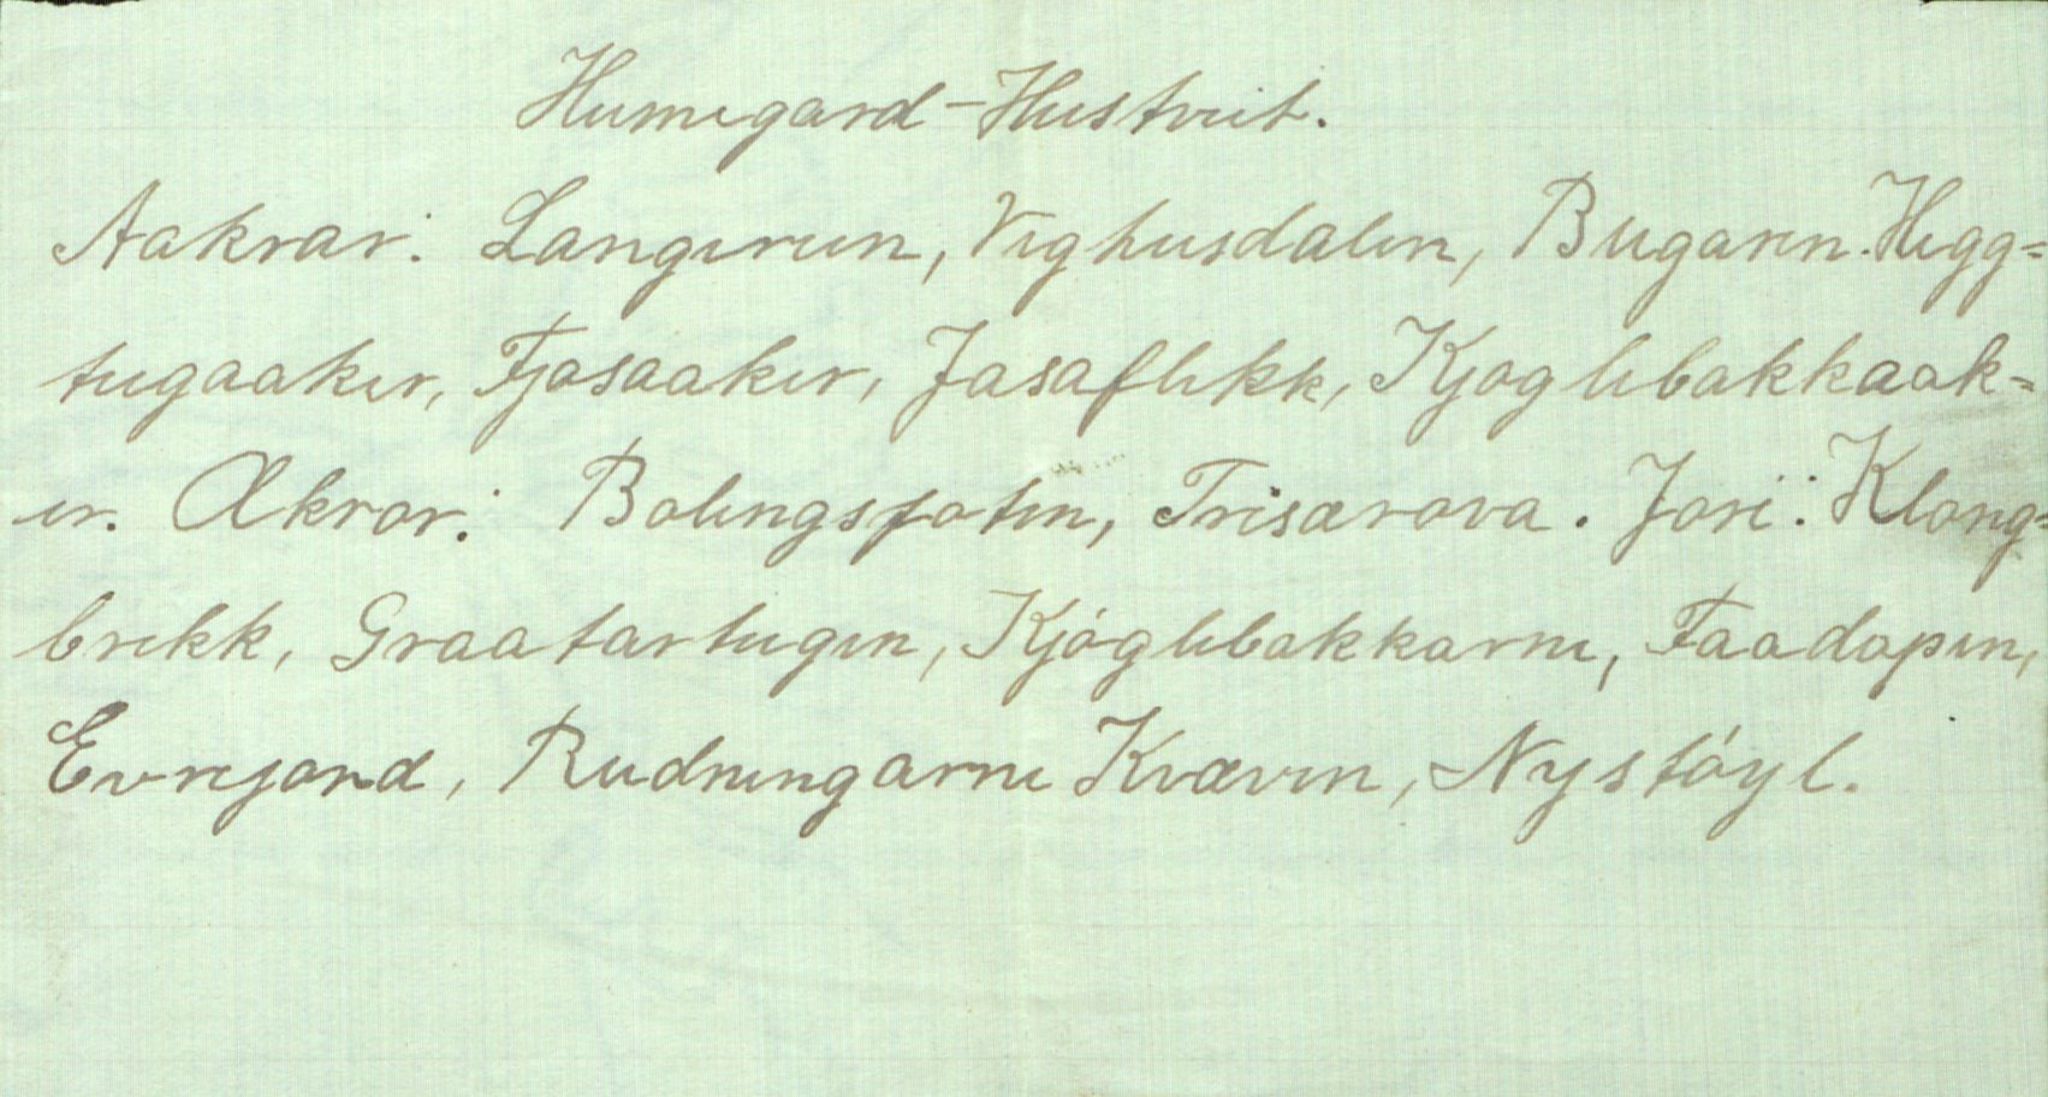 Humegard - Hustveit.
Aakrar: Langerun, Veghusdalen, Bugaren. Hegg=
tugaaker, Fjosaaker, Jasaflekk, Kjoglebakkaak=
er. Ækrar: Bolengsfoten, Trisærova. Jori: Klong=
brekk, Graatartugen, Kjóglebakkarne, Faadapen,
Evrejord, Rudningarne Kvæven, Nystóyl.